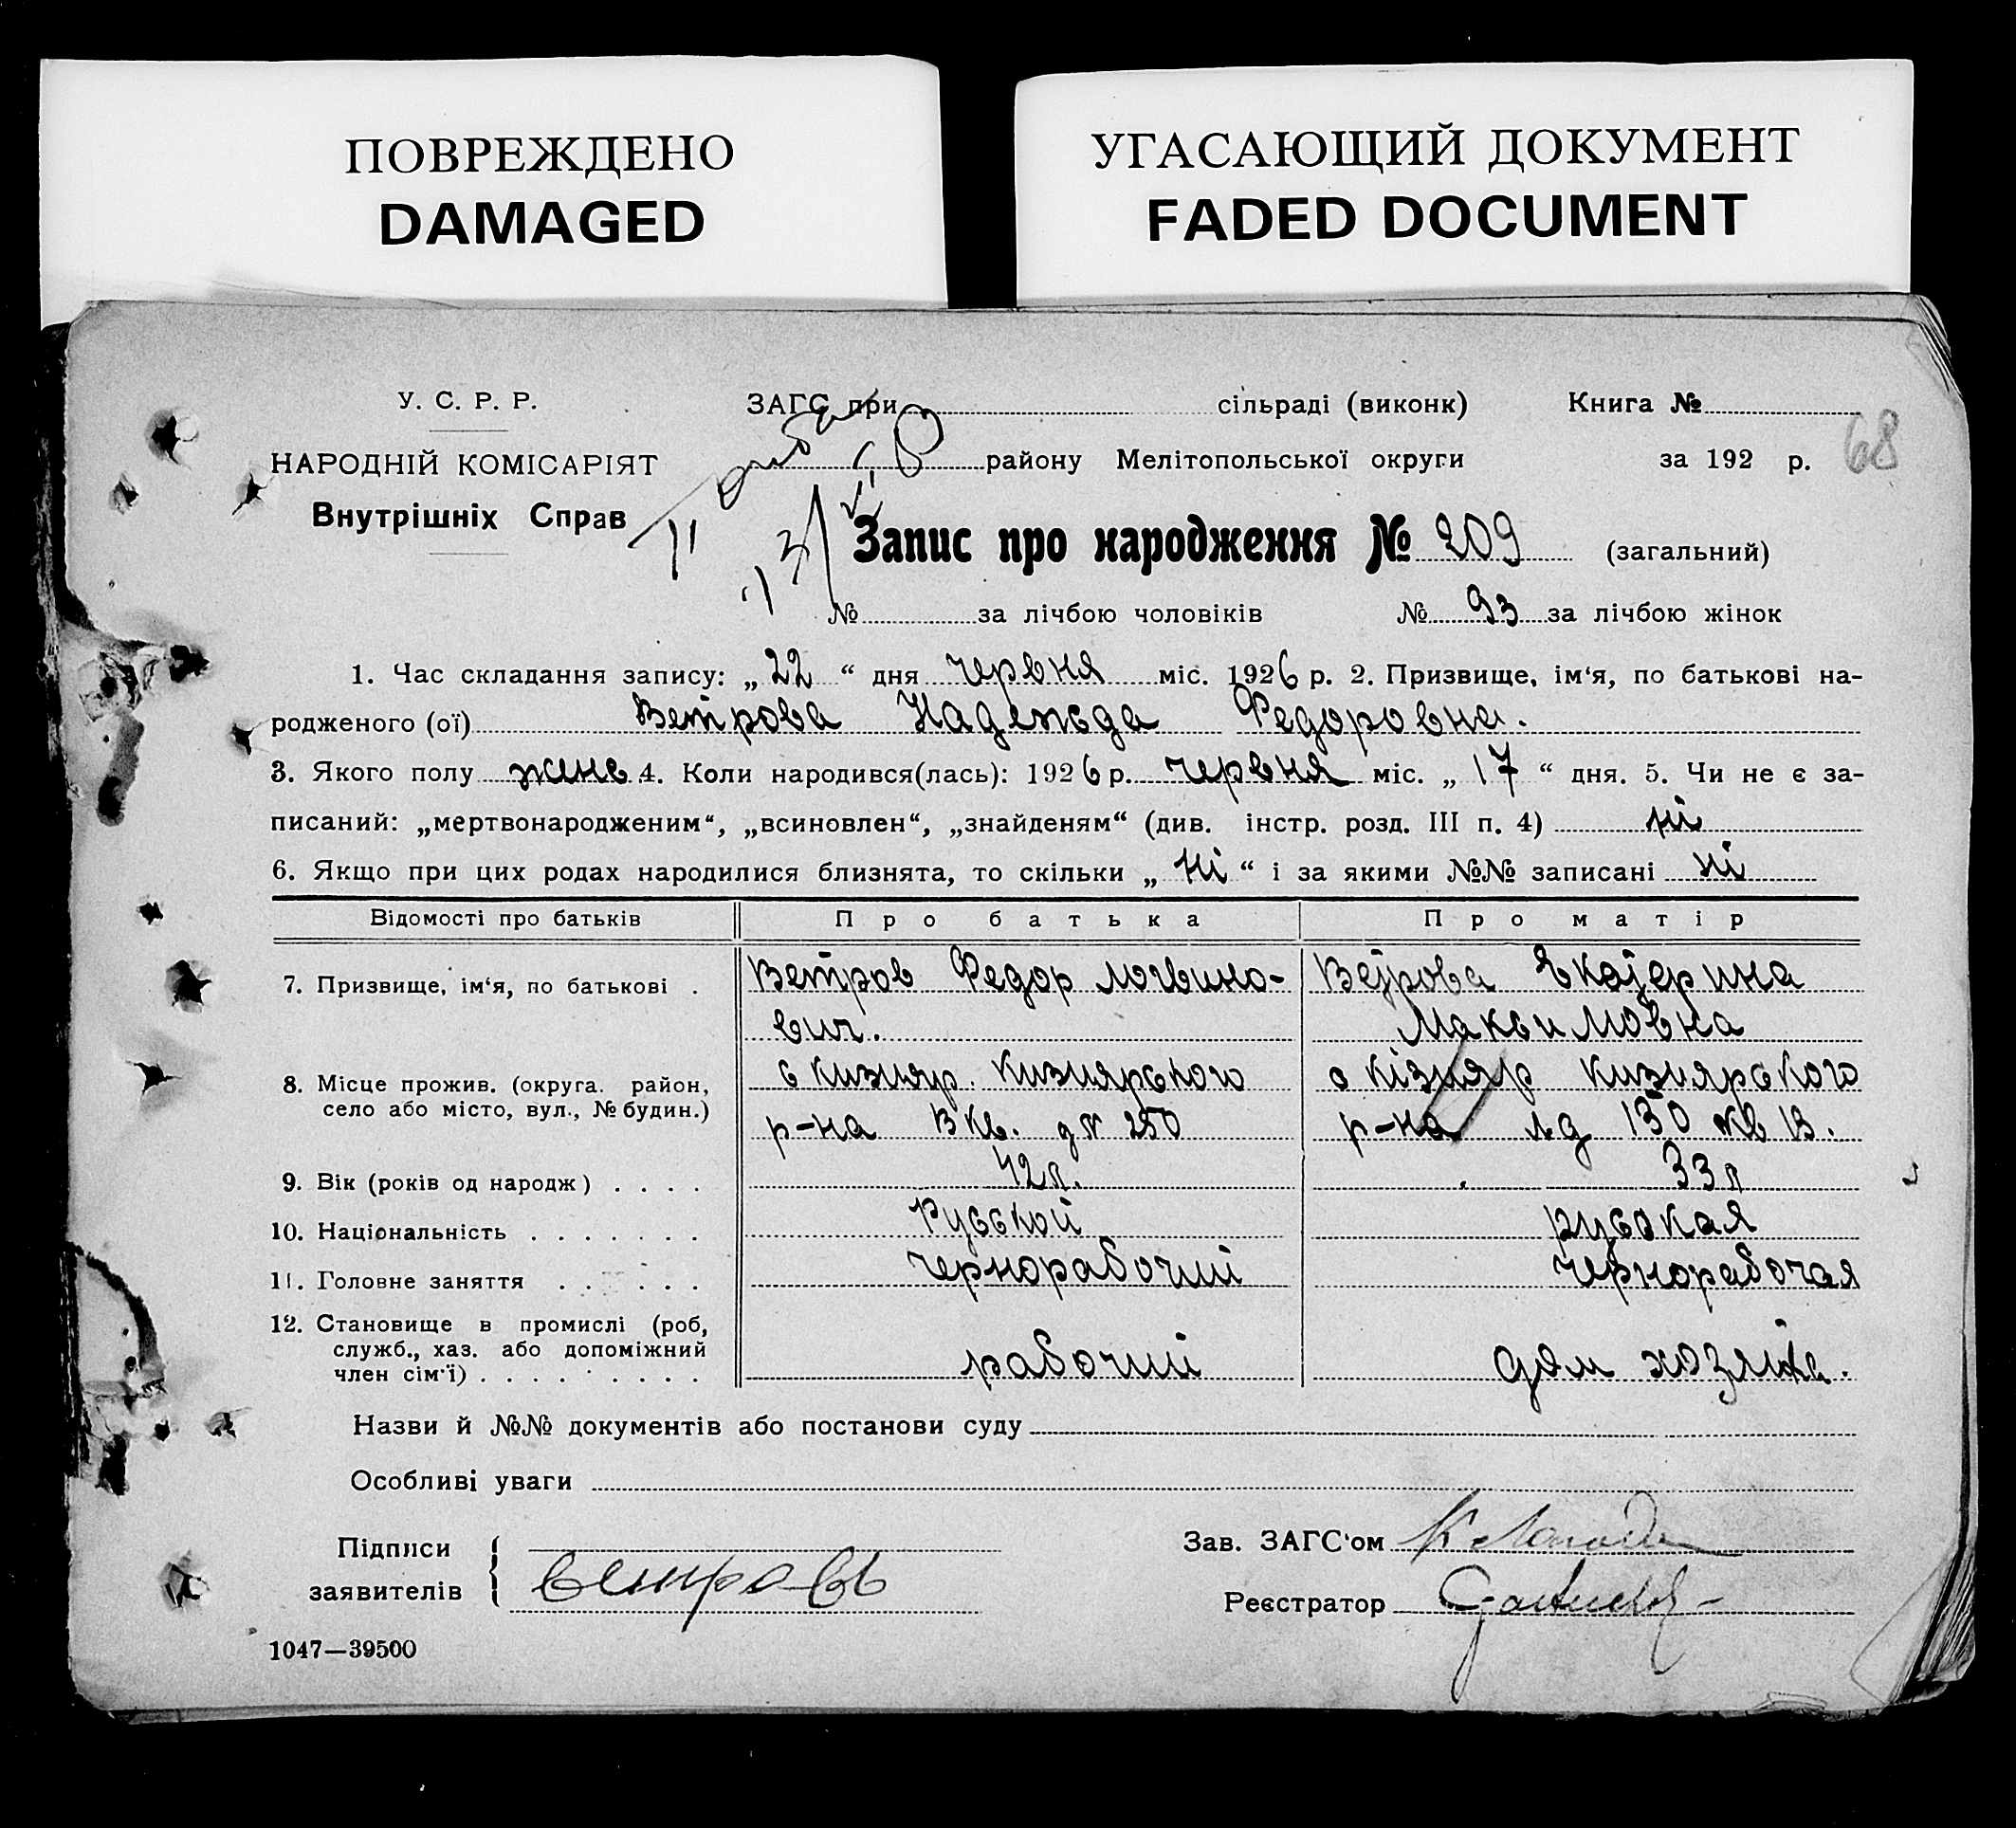 ПОВРЕЖДЕНО
DAMAGED
УГАСАЮЩИЙ ДОКУМЕНТ
FADED DOCUMENT
У. С. Р. Р.
ЗАГС при сільраді (виконк) Книга №
68
НАРОДНІЙ КОМІСАРІЯТ
району Мелітопольської округи за 192 р.
Внутрішніх Справ
Запис про народження № 209 (загальний)
№ за лічбою чоловіків № 93 за лічбою жінок
1. Час складання запису: „ 22 “ дня червня міс. 1926 р. 2. Призвище, ім‘я, по батькові на-
родженого (ої) Ветрова Надежда Федоровна.
3. Якого полу жен 4. Коли народився(лась): 1926 р. червня міс. „ 17 “ дня. 5. Чи не є за-
писаний: „мертвонародженим“, „всиновлен“, „знайденям“ (див. інстр. розд. III п. 4) ні
6. Якщо при цих родах народилися близнята, то скільки „ ні “ і за якими №№ записані ні
Відомості про батьків Про батька Про матір
7. Призвище, ім‘я, по батькові . Ветров Федор Логвино- Ветрова Екатерина
вич. Максимовна
8. Місце прожив. (округа. район, с кизияр. кизиярського с кізияр кизиярского
село або місто, вул., № будин.) р-на 3 кв. д № 250 р-на д 130 кв 13.
9. Вік (років од народж) . . . . 42 л. 33 л
10. Національність . . . . . . . Русской русская
11. Головне заняття . . . . . . чернорабочий чернорабочая
12. Становище в промислі (роб,
служб., хаз. або допоміжний рабочий дом хозяйк.
член сім‘ї) . . . . . . . . .
Назви й №№ документів або постанови суду
Особливі уваги
Підписи Зав. ЗАГС‘ом
заявителів Ветровъ Реєстратор
1047—39500